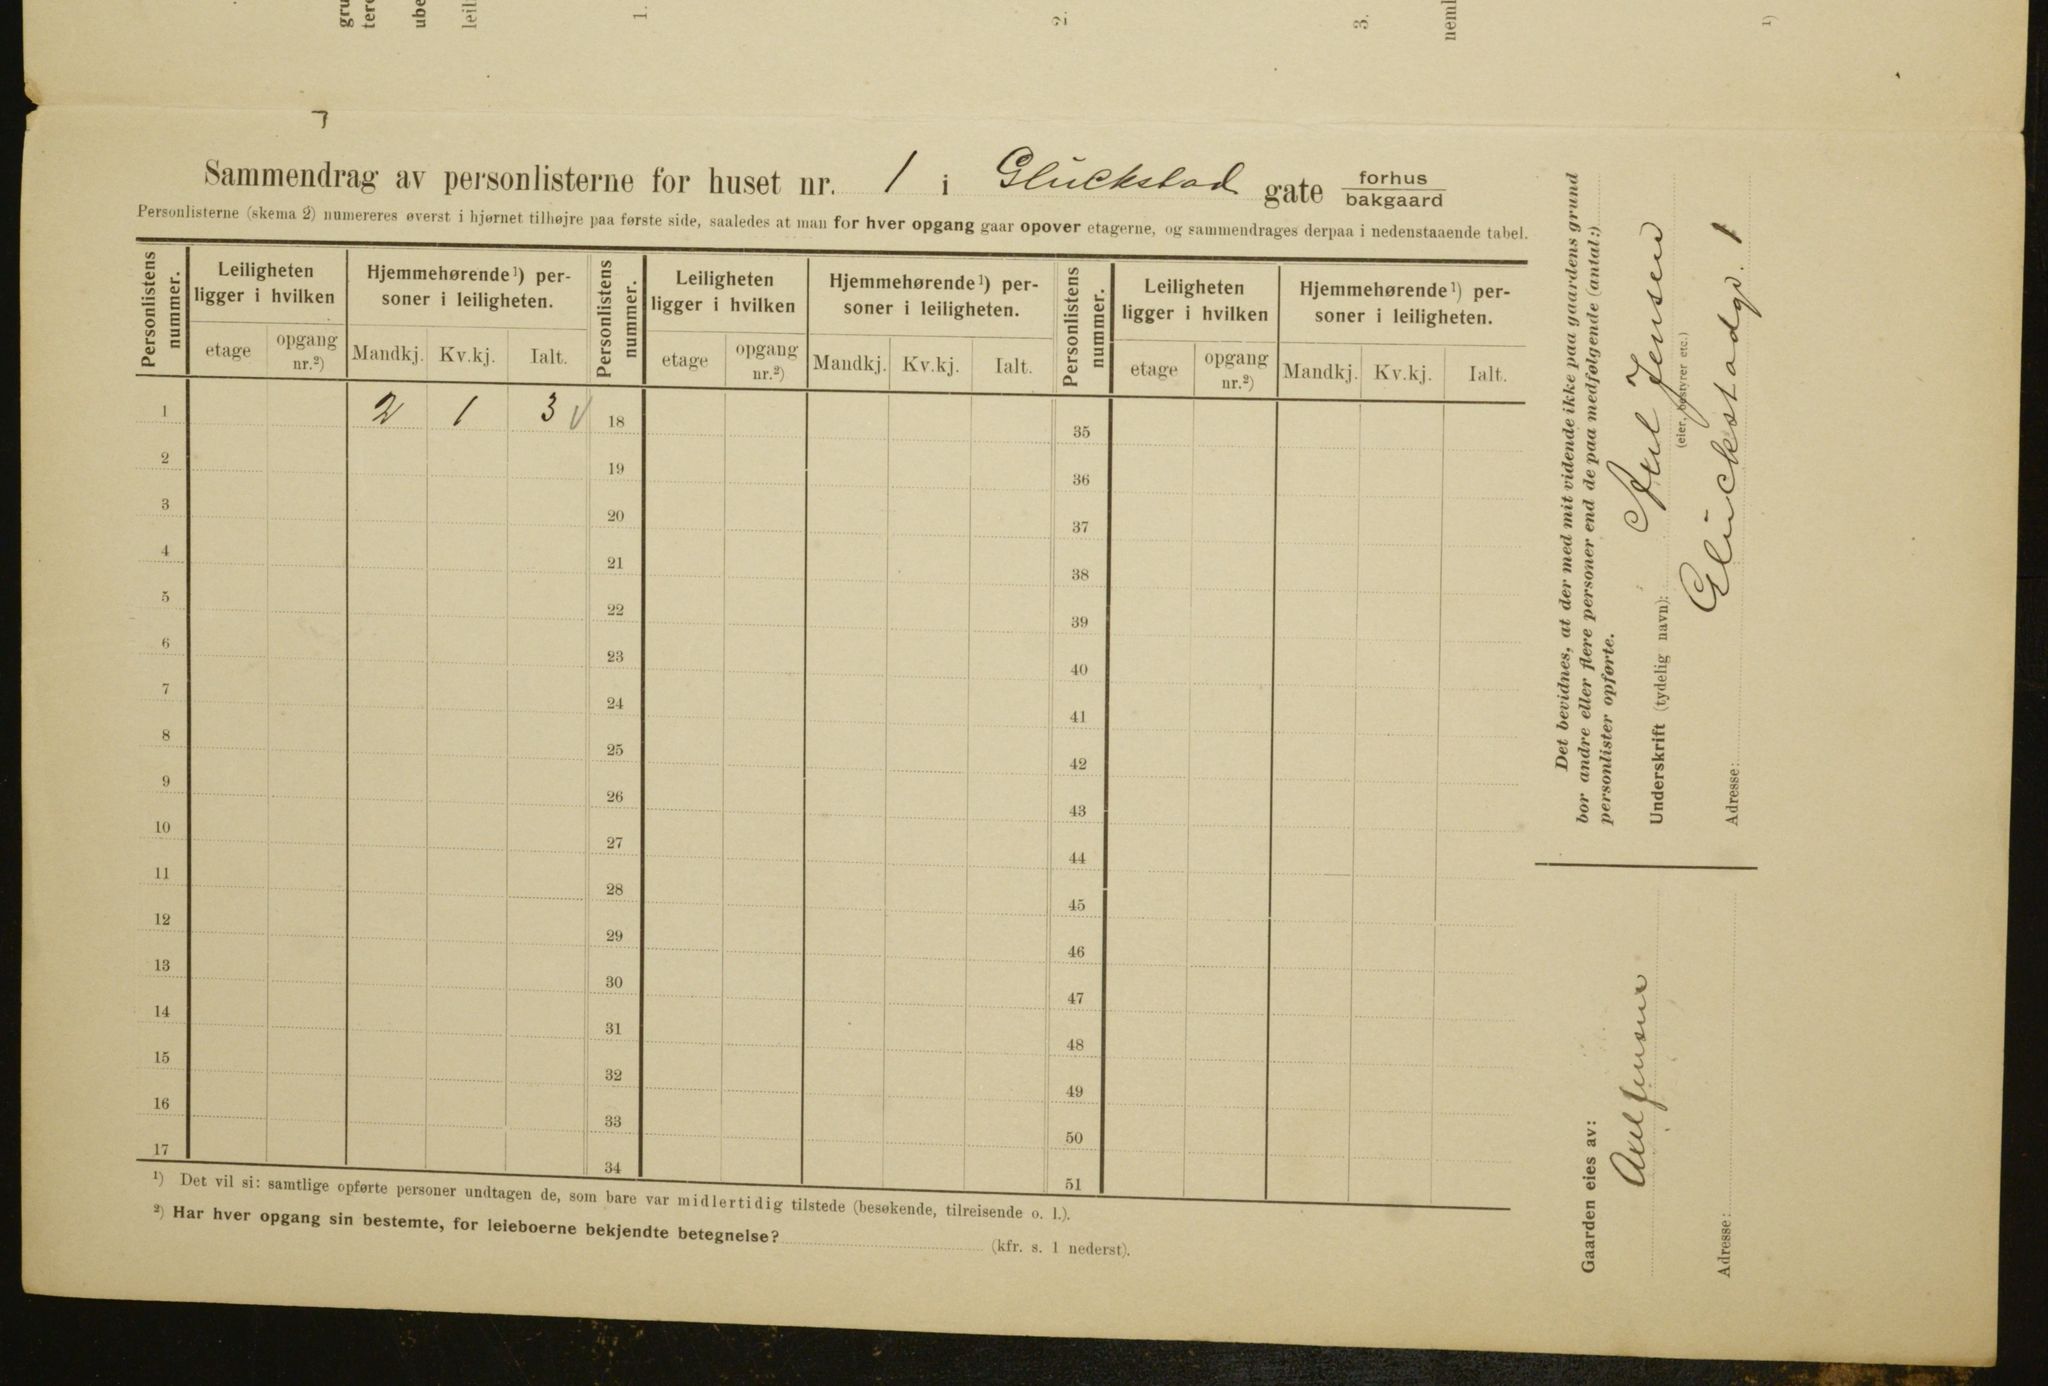 gru
tere
ube
leil
1.
2.
3.
neml
1)
Sammendrag av personlisterne for huset nr. 1 i Glückstad gate forhus
bakgaard
Personlisterne (skema 2) numereres øverst i hjørnet tilhøjre paa første side, saaledes at man for hver opgang gaar opover etagerne, og sammendrages derpaa i nedenstaaende tabel.
Personlistens nummer.
Leiligheten ligger i hvilken
Hjemmehørende¹) personer i leiligheten.
Personlistens nummer.
Leiligheten ligger i hvilken
Hjemmehørende¹) personer i leiligheten.
Personlistens nummer.
Leiligheten ligger i hvilken
Hjemmehørende¹) personer i leiligheten.
etage opgang nr.²) Mandkj. Kv.kj. Ialt. etage opgang nr.²) Mandkj. Kv.kj. Ialt. etage opgang nr.²) Mandkj. Kv.kj. Ialt.
1 2 1 3 18 35
2 19 36
3 20 37
4 21 38
5 22 39
6 23 40
7 24 41
8 25 42
9 26 43
10 27 44
11 28 45
12 29 46
13 30 47
14 31 48
15 32 49
16 33 50
17 34 51
¹) Det vil si: samtlige opførte personer undtagen de, som bare var midlertidig tilstede (besøkende, tilreisende o. l.).
²) Har hver opgang sin bestemte, for leieboerne bekjendte betegnelse? (kfr. s. 1 nederst).
Det bevidnes, at der med mit vidende ikke paa gaardens grund
bor andre eller flere personer end de paa medfølgende (antal:)
personlister opførte.
Underskrift (tydelig navn): Axel Jensen
(eier, bestyrer etc.)
Adresse: Glückstadgt. 1
Gaarden eies av:
Axel Jensen
Adresse: